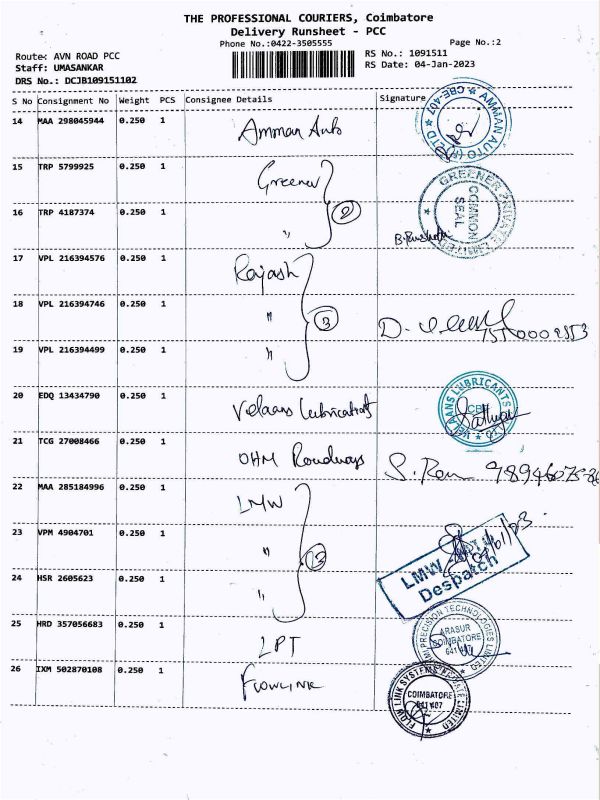 THE PROFESSIONAL COURIERS, Coimbatore
Delivery Runsheet - PCC
Phone No.:0422-3505555
Page No.:2
Route: AVN ROAD PCC
RS No.: 1091511
Staff: UMASANKAR
RS Date: 04-Jan-2023
DRS No.: DCJB109151102
S No Consignment No Weight PCS Consignee Details Signature
14 MAA 298045944 0.250 1 Amman Auto
AMMAN AUTO (P) LTD CBE-407
15 TRP 5799925 0.250 1 Greener
16 TRP 4187374 0.250 1 " 2
GREENER PRIVATE LIMITED
COMMON SEAL
17 VPL 216394576 0.250 1 Rajash
18 VPL 216394746 0.250 1 " 3 D.
19 VPL 216394499 0.250 1 "
20 EDQ 13434790 0.250 1 Velaans Lubrications
VELAANS LUBRICANTS CBE
21 TCG 27008466 0.250 1 OHM Roadways S. Ram
22 MAA 285184996 0.250 1 LMW
23 VPM 4904701 0.250 1 "
24 HSR 2605623 0.250 1 "
LMW
Despatch
25 HRD 357056683 0.250 1 LPT
PRECISION TECHNOLOGIES LIMITED
ARASUR
COIMBATORE
26 IXM 502870108 0.250 1 Flowlink
FLOW LINK SYSTEMS PRIVATE LIMITED
COIMBATORE
641 407